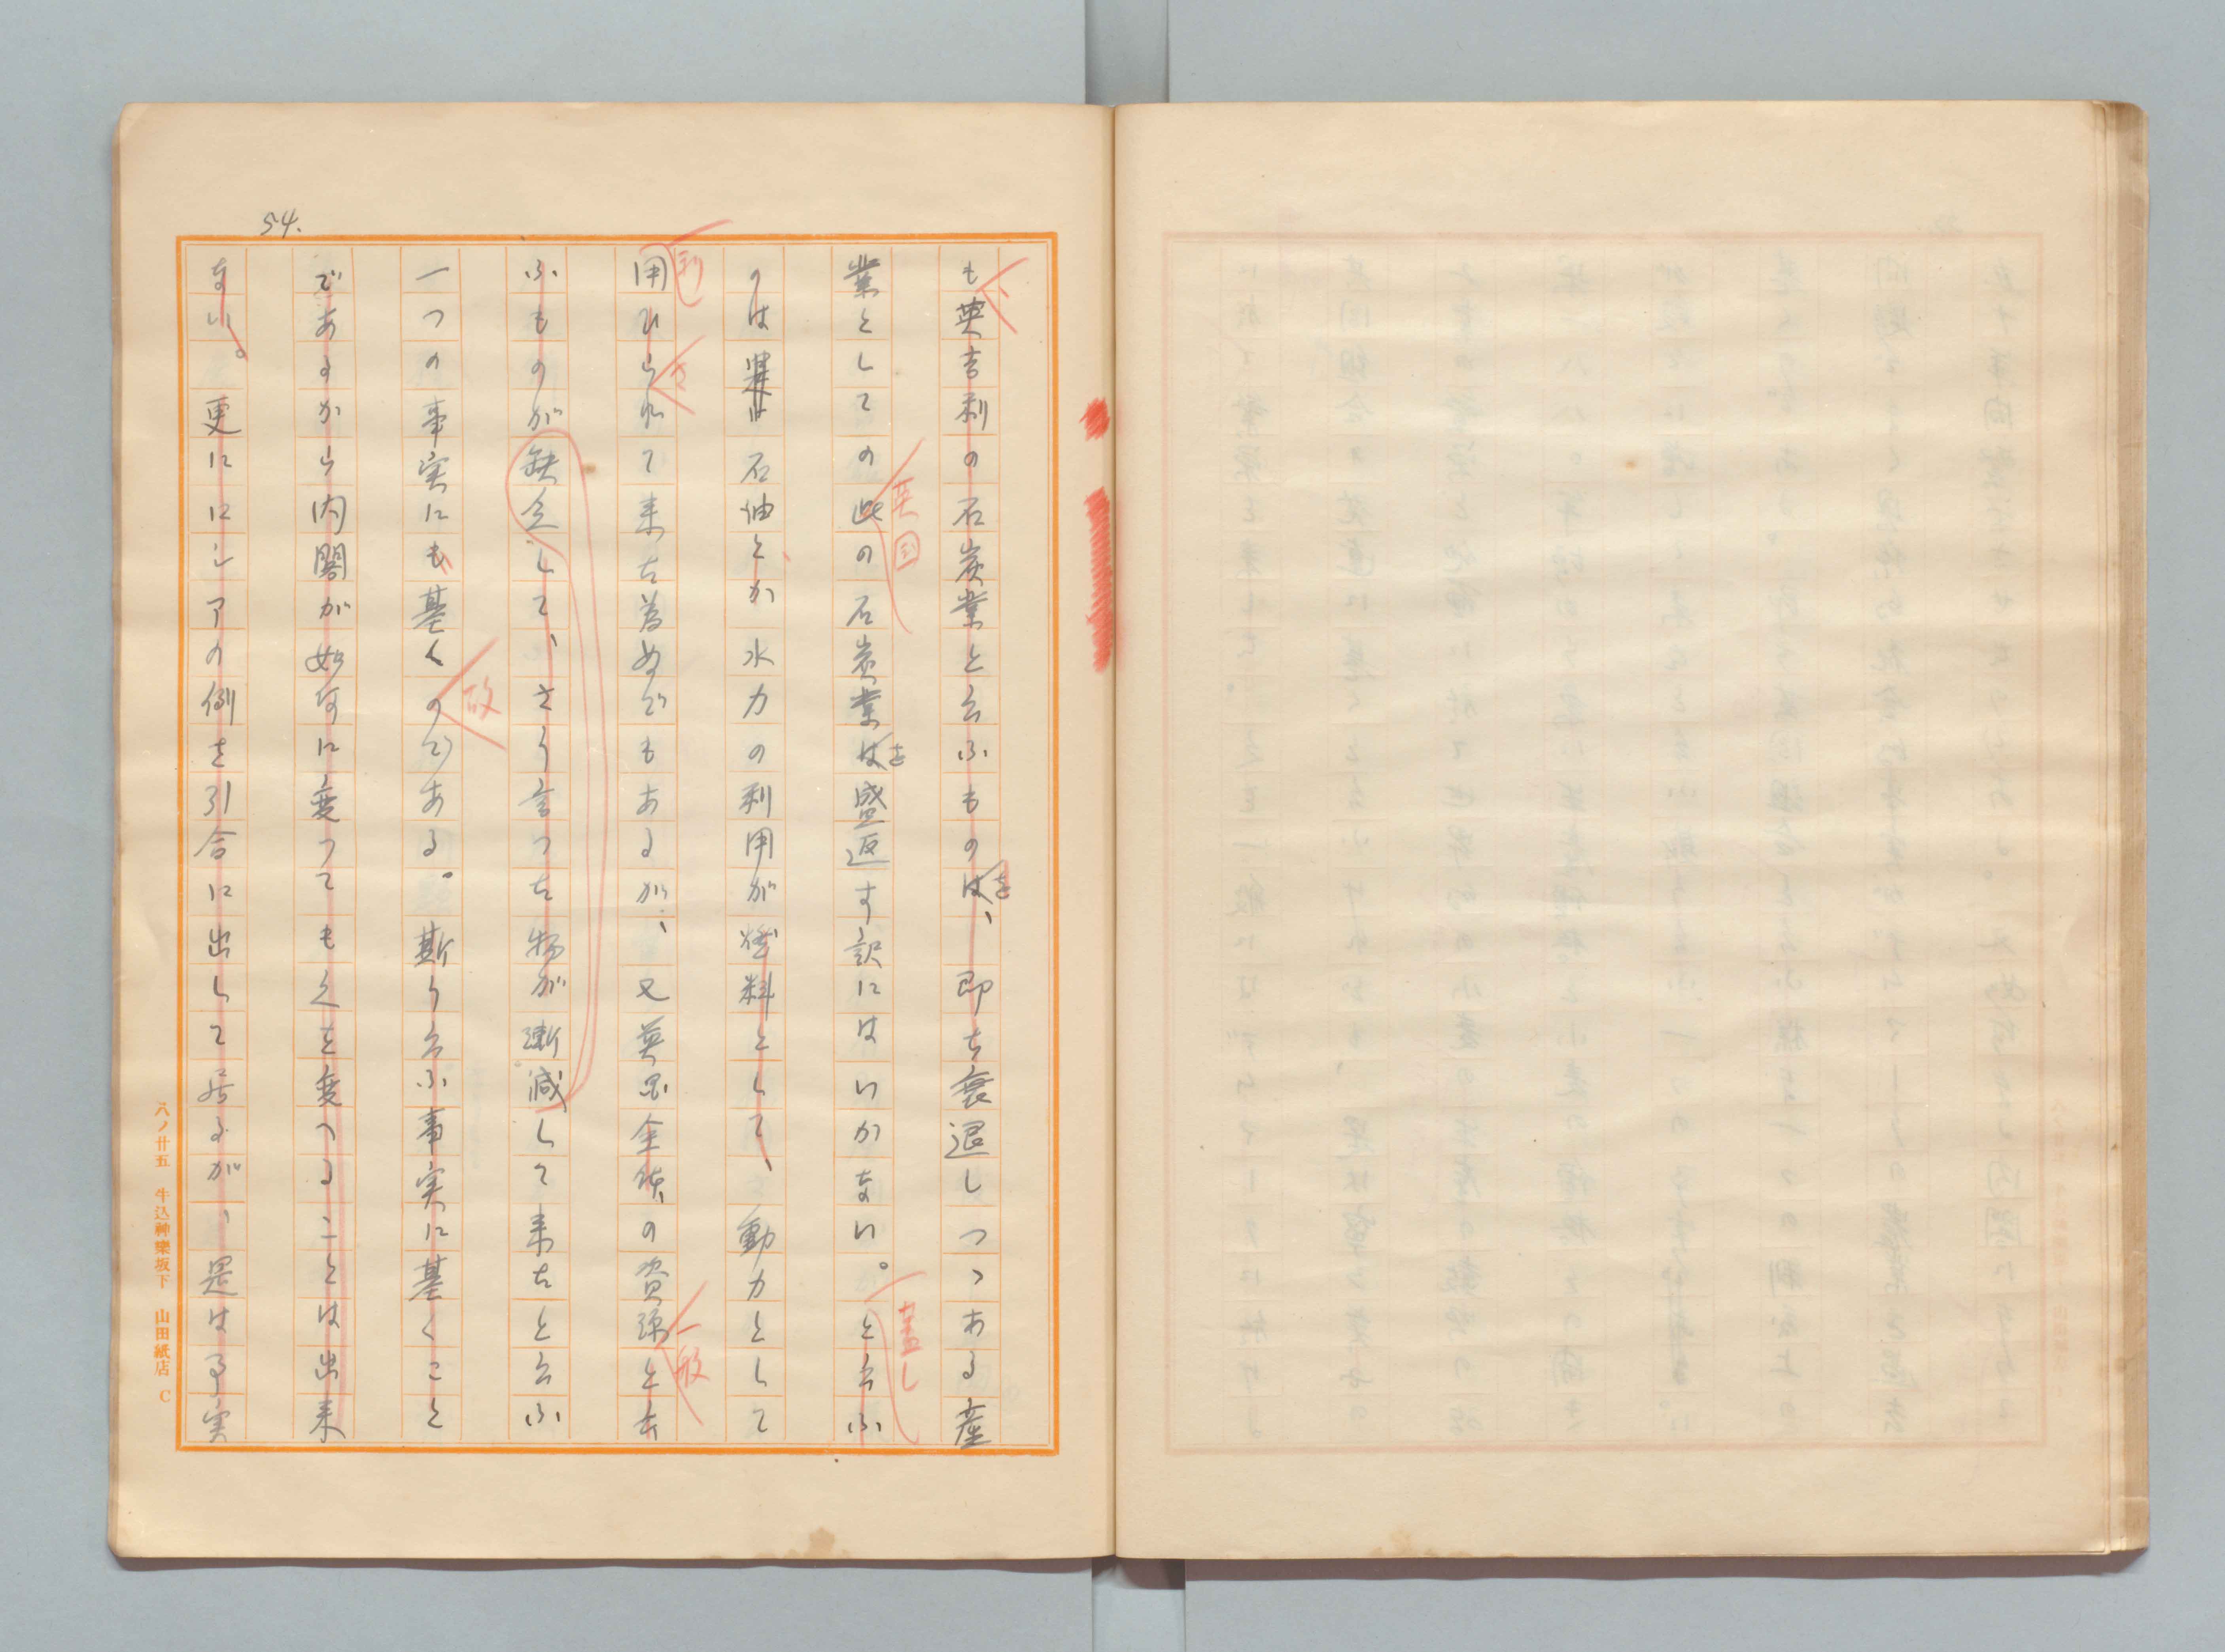 54.
も英吉利の石炭業と云ふものは、即ち衰退しつつある産
を
業としての此の石炭業は盛返す訳にはいかない。と云ふ
英国
を
蓋し
のは石油とか水力の利用が燃料として、動力として
用ひられて来た為めでもあるが、又英国全体の資源と云
利
さ
一般
ふものが缺乏して、さう言つた物が漸減して来たと云ふ
一つの事実にも基くのである。斯う云ふ事実に基くこと
故
であるから内閣が如何に変つても之を変へることは出来
ない。更にロシアの例を引合に出して居るが、是は事実
八ノ廿五 牛込神樂坂下 山田紙店 C